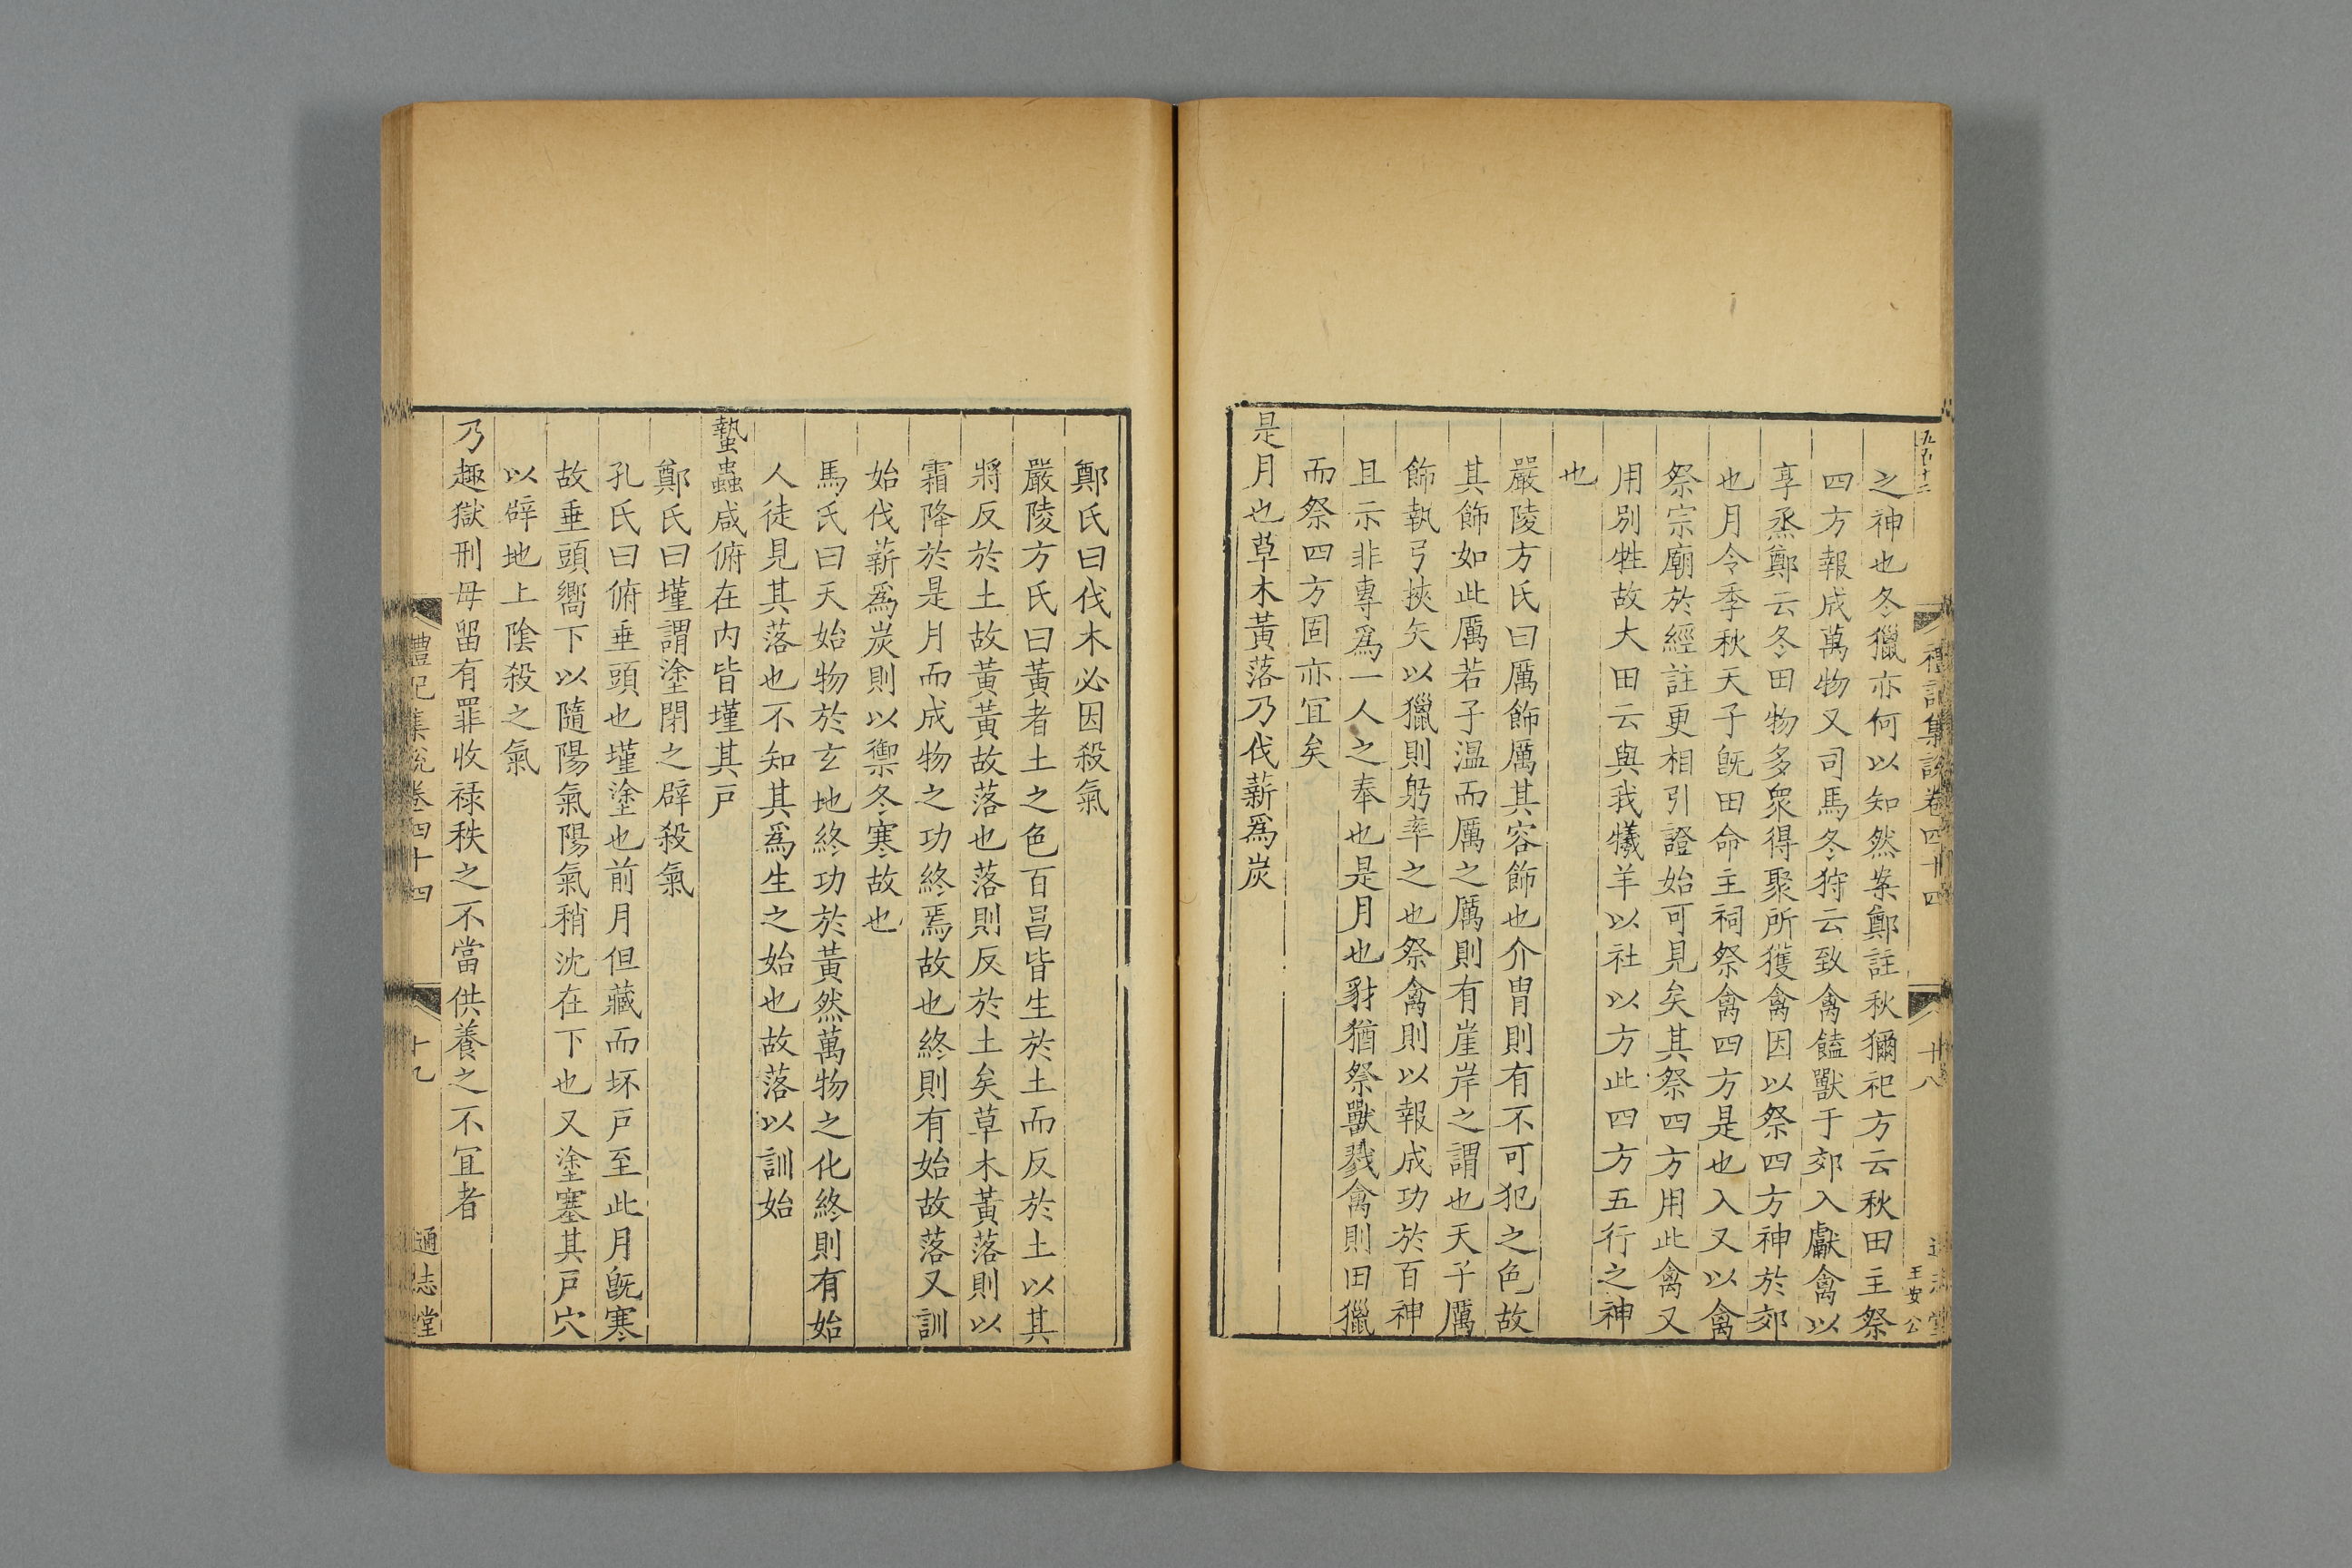 五百十二
禮記集說卷四十四
十八
王安公
之神也冬獵亦何以知然案鄭註秋獮祀方云秋田主祭
四方報成萬物又司馬冬狩云致禽饁獸于郊入獻禽以
享烝鄭云冬田物多衆得聚所獲禽因以祭四方神於郊
也月令季秋天子旣田命主祠祭禽四方是也入又以禽
祭宗廟於經註更相引證始可見矣其祭四方用此禽又
用別牲故大田云與我犧羊以社以方此四方五行之神
也
嚴陵方氏曰厲飾厲其容飾也介胄則有不可犯之色故
其飾如此厲若子溫而厲之厲則有崖岸之謂也天子厲
飾執弓挾矢以獵則躬率之也祭禽則以報成功於百神
且示非專爲一人之奉也是月也豺猶祭獸戮禽則田獵
而祭四方固亦宜矣
是月也草木黃落乃伐薪爲炭
鄭氏曰伐木必因殺氣
嚴陵方氏曰黃者土之色百昌皆生於土而反於土以其
將反於土故黃黃故落也落則反於土矣草木黃落則以
霜降於是月而成物之功終焉故也終則有始故落又訓
始伐薪爲炭則以禦冬寒故也
馬氏曰天始物於玄地終功於黃然萬物之化終則有始
人徒見其落也不知其爲生之始也故落以訓始
蟄蟲咸俯在内皆墐其戸
鄭氏曰墐謂塗閉之辟殺氣
孔氏曰俯垂頭也墐塗也前月但藏而坏戸至此月旣寒
故垂頭嚮下以隨陽氣陽氣稍沈在下也又塗塞其戸穴
以辟地上陰殺之氣
乃趣獄刑毋留有罪收祿秩之不當供養之不宜者
禮記集說卷四十四
十九
通志堂